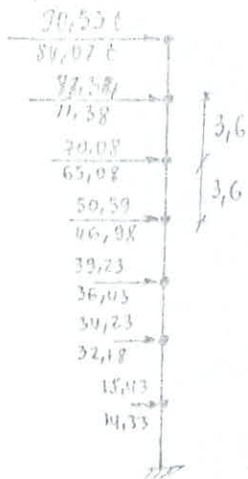 90,53 t
84,07 t
11,38
3,6
70,08
65,08
3,6
50,59
46,98
39,23
36,43
34,23
32,18
15,43
14,33